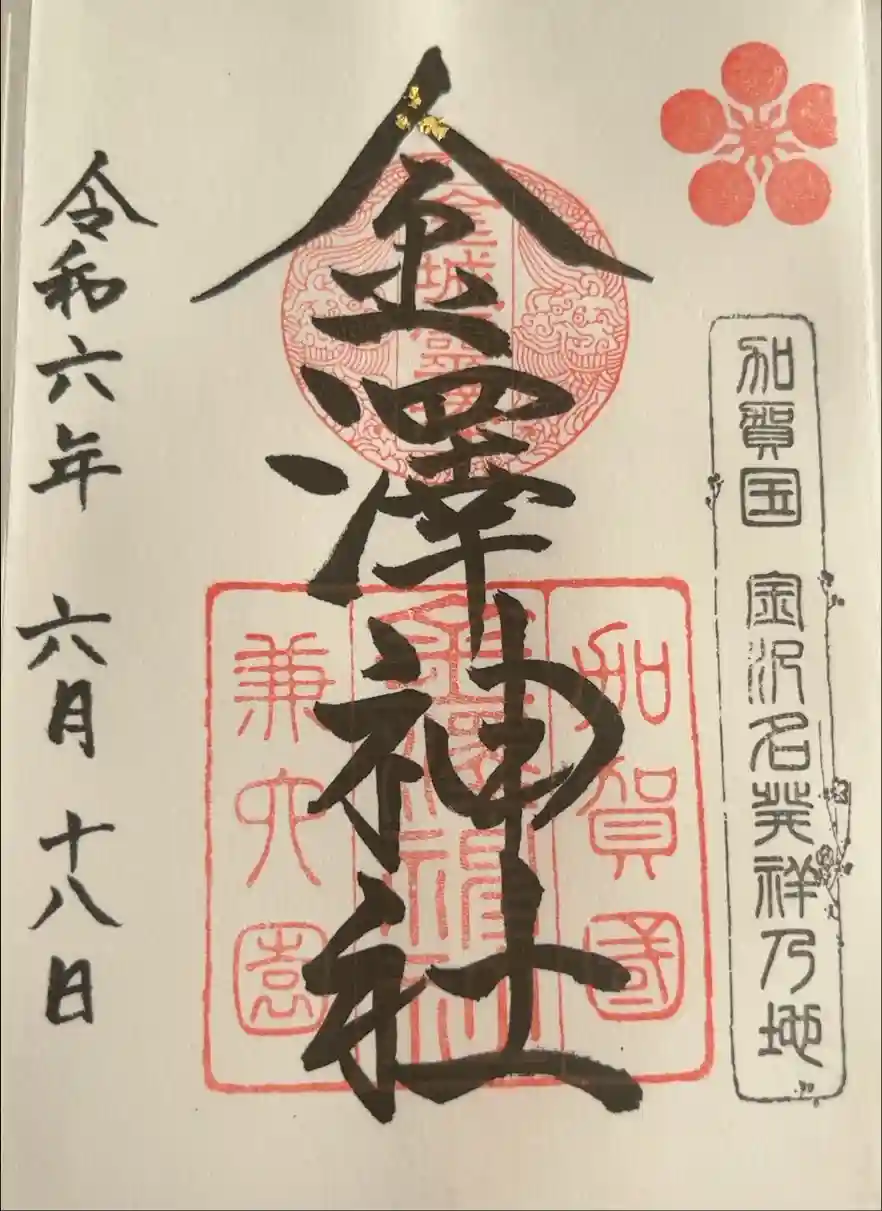 加賀国 金沢名発祥乃地
金澤神社
加賀國
金澤神社
兼六園
金城霊澤
令和六年 六月 十八日